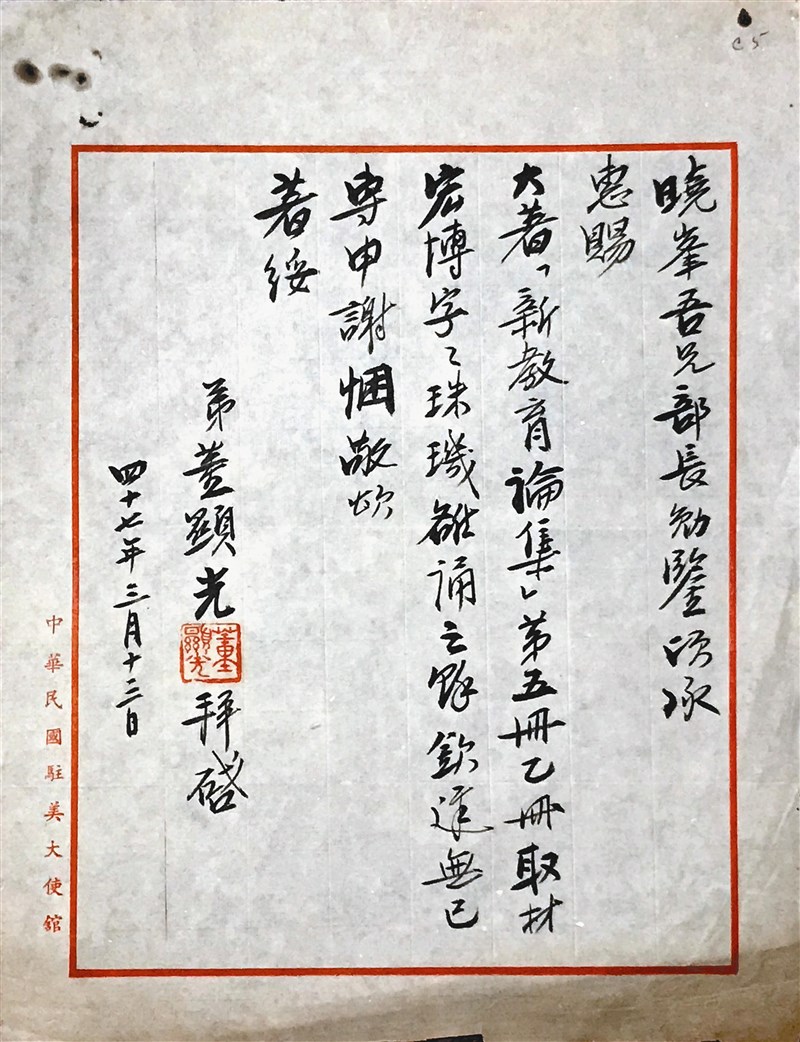 C5
曉峯吾兄部長勛鑒頃承
惠賜
大著「新教育論集」第五冊乙冊取材
宏博字〻珠璣雒誦之餘欽遲無已
專申謝悃敬頌
著綏
弟董顯光拜啓
董顯光
四十七年三月十三日
中華民國駐美大使館